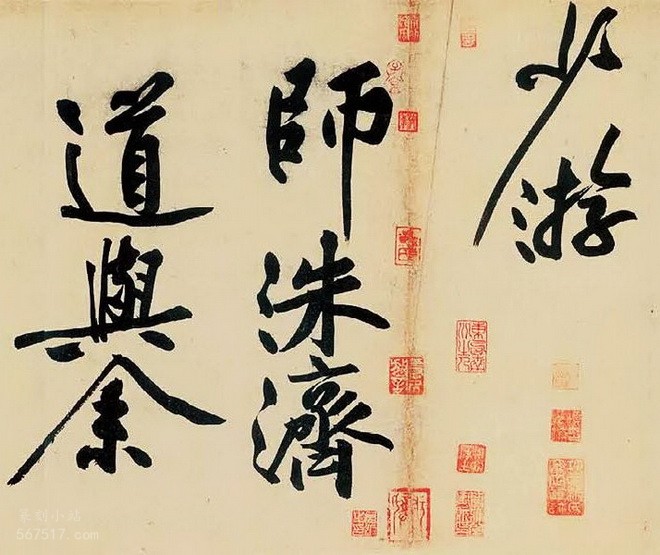 少游
師洙濟
道與余
篆刻小站
567517.com